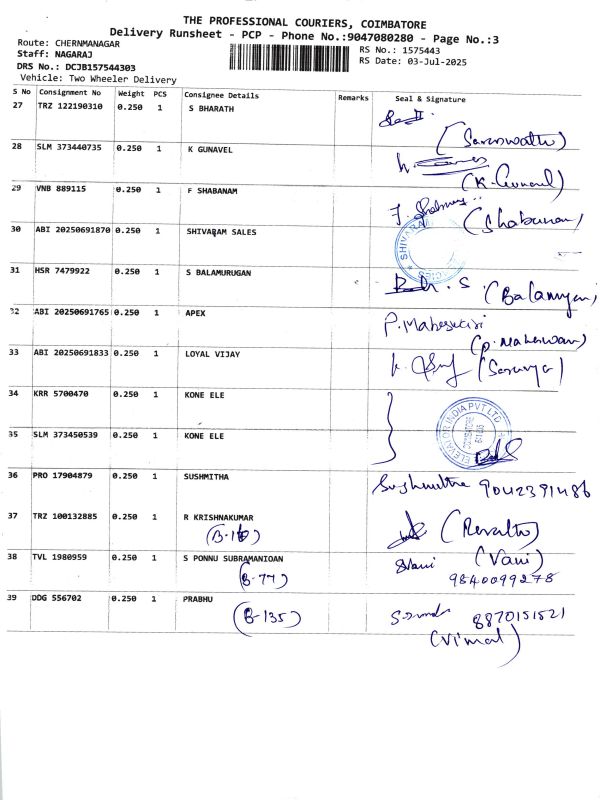 THE PROFESSIONAL COURIERS, COIMBATORE
Delivery Runsheet - PCP - Phone No.:9047080280 - Page No.:3
Route: CHERNMANAGAR
RS No.: 1575443
Staff: NAGARAJ
RS Date: 03-Jul-2025
DRS No.: DCJB157544303
Vehicle: Two Wheeler Delivery
S No Consignment No Weight PCS Consignee Details Remarks Seal & Signature
27 TRZ 122190310 0.250 1 S BHARATH
(Saraswathi)
28 SLM 373440735 0.250 1 K GUNAVEL
(K. Gunavel)
29 VNB 889115 0.250 1 F SHABANAM
F. Shabanam (Shabanam)
30 ABI 20250691870 0.250 1 SHIVARAM SALES
SHIVARA
31 HSR 7479922 0.250 1 S BALAMURUGAN
S. (Balamurugan)
32 ABI 20250691765 0.250 1 APEX
P. Maheswari
(P. Maheswari)
33 ABI 20250691833 0.250 1 LOYAL VIJAY
(Saranya)
34 KRR 5700470 0.250 1 KONE ELE
ELEVATOR INDIA PVT LTD
35 SLM 373450539 0.250 1 KONE ELE
36 PRO 17904879 0.250 1 SUSHMITHA
Sushmitha 9042391486
37 TRZ 100132885 0.250 1 R KRISHNAKUMAR
(Revathi)
38 TVL 1980959 0.250 1 S PONNU SUBRAMANIOAN
(B-77)
(Vani)
9840099278
39 DDG 556702 0.250 1 PRABHU
(B-135)
8870151521
(Vimal)